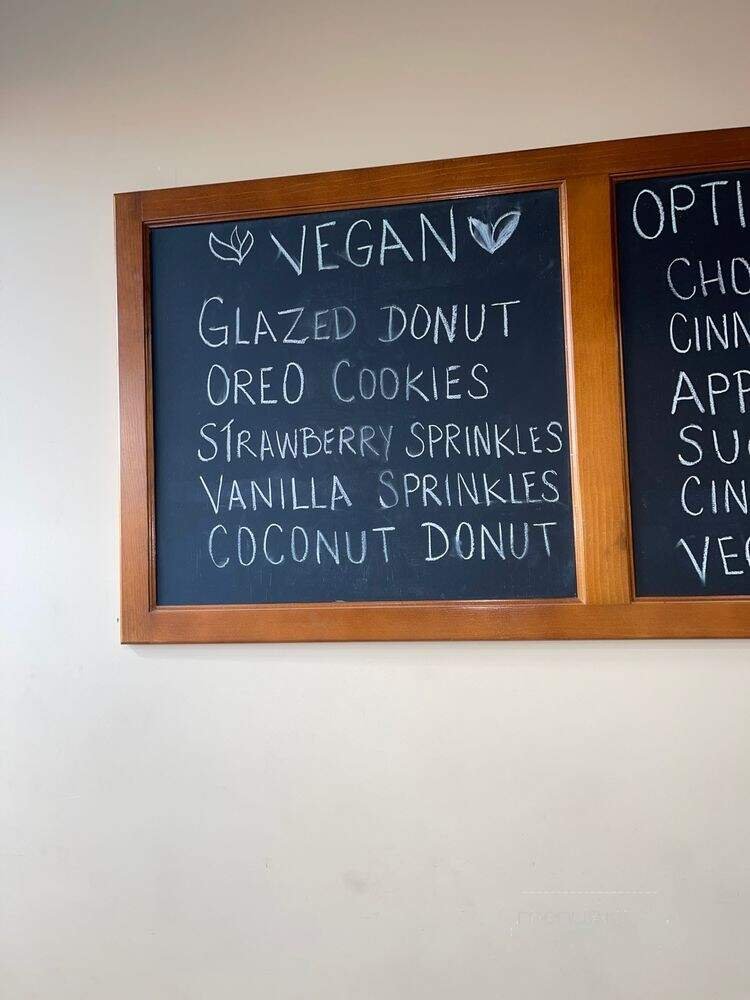 VEGAN
GLAZED DONUT
OREO COOKIES
STRAWBERRY SPRINKLES
VANILLA SPRINKLES
COCONUT DONUT
OPTI
CHO
CINN
APP
SU
CIN
VE